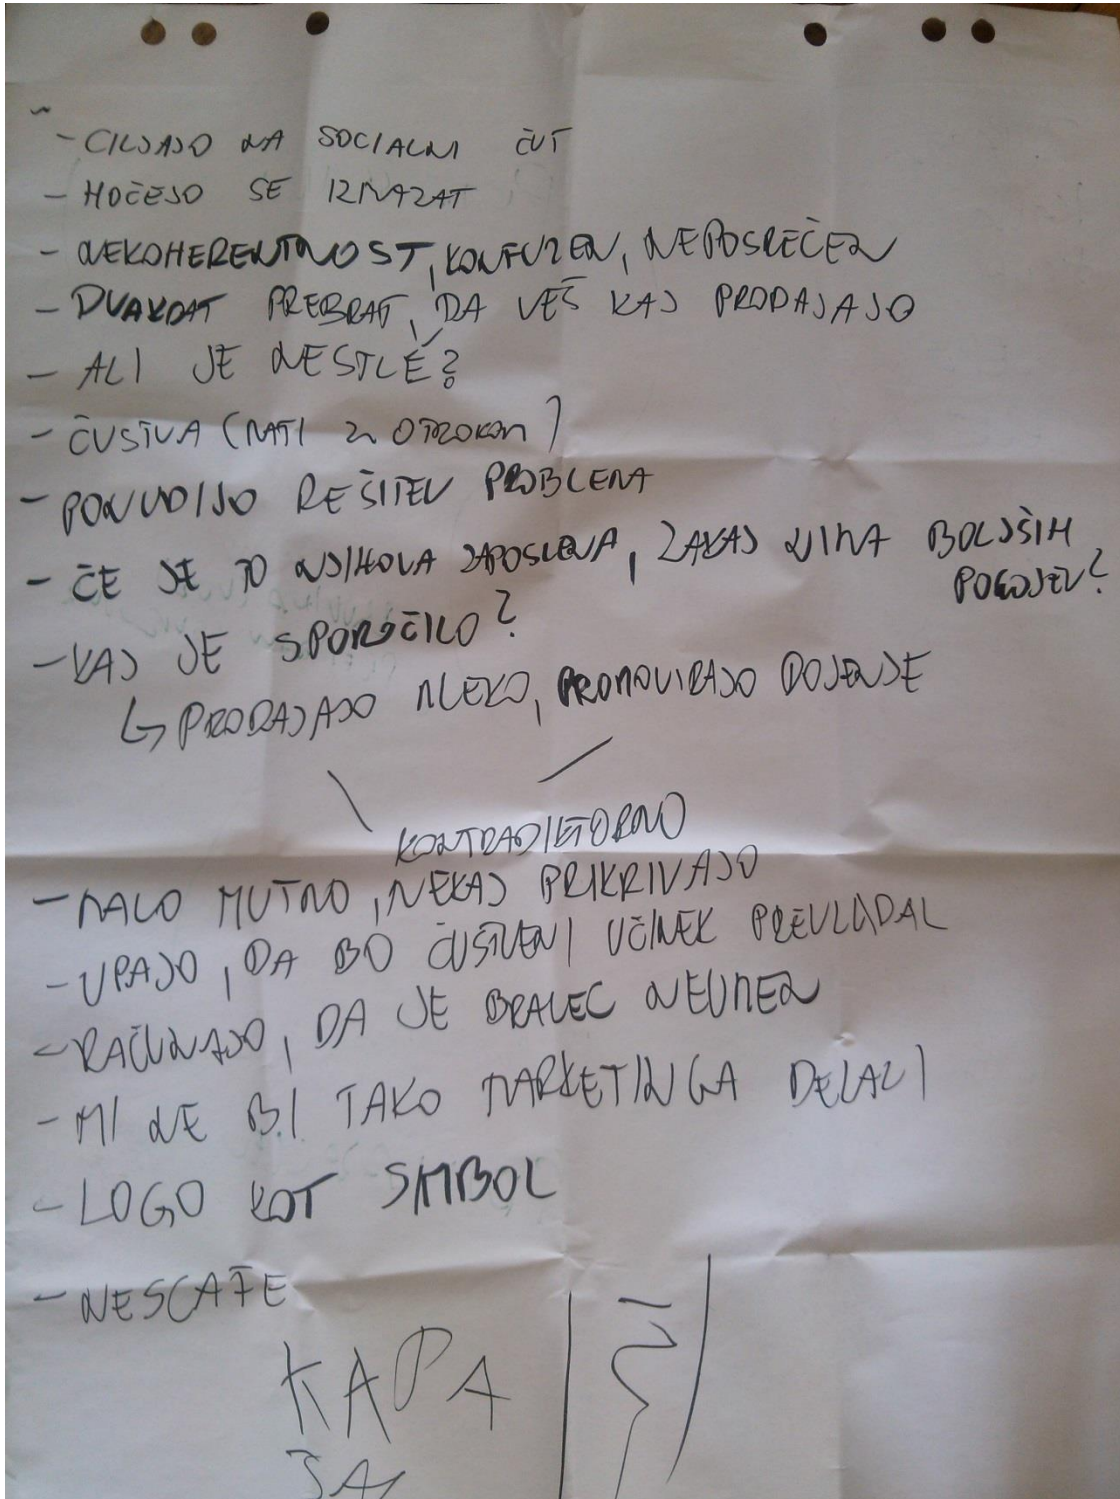 - CILJAJO NA SOCIALNI ČUT
- HOČEJO SE IZMAZAT
- NEKOHERENTNOST, KONFUZEN, NEPOSREČEN
- DVAKRAT PREBRAT, DA VEŠ KAJ PRODAJAJO
- ALI JE NESTLÉ?
- ČUSTVA (MATI Z OTROKOM)
- PONUDIJO REŠITEV PROBLEMA
- ČE JE TO NJIHOVA ZAPOSLENA, ZAKAJ NIMA BOLJŠIH
POGOJEV?
- KAJ JE SPOROČILO?
↳ PRODAJAJO MLEKO, PROMOVIRAJO DOJENJE
KONTRADIKTORNO
- MALO MUTNO, NEKAJ PRIKRIVAJO
- UPAJO, DA BO ČUSTVENI UČINEK PREVLADAL
- RAČUNAJO, DA JE BRALEC NEUMEN
- MI NE BI TAKO MARKETINGA DELALI
- LOGO KOT SIMBOL
- NESCAFE
KAPA
ŠAL